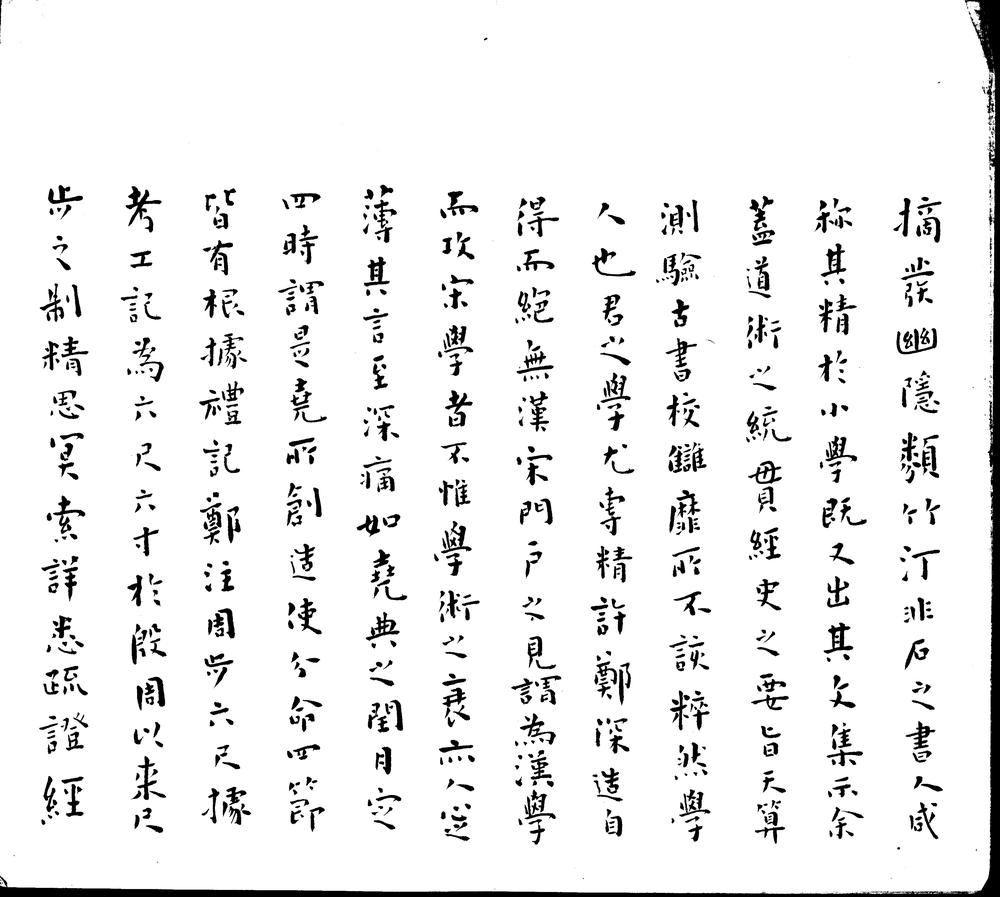 摘發幽隱類竹汀非石之書人咸
称其精於小學既又出其文集示余
蓋道術之統貫經史之要旨天算
測驗古書校讎靡所不該粹然學
人也君之學尤專精許鄭深造自
得而絕無漢宋門戶之見謂為漢學
而攻宋學者不惟學術之衰亦人心
薄其言至深痛如堯典之閏月定
四時謂是堯所創造使分命四節
皆有根據禮記鄭注周步六尺據
考工記為六尺六寸於殷周以來尺
步之制精思冥索詳悉疏證經